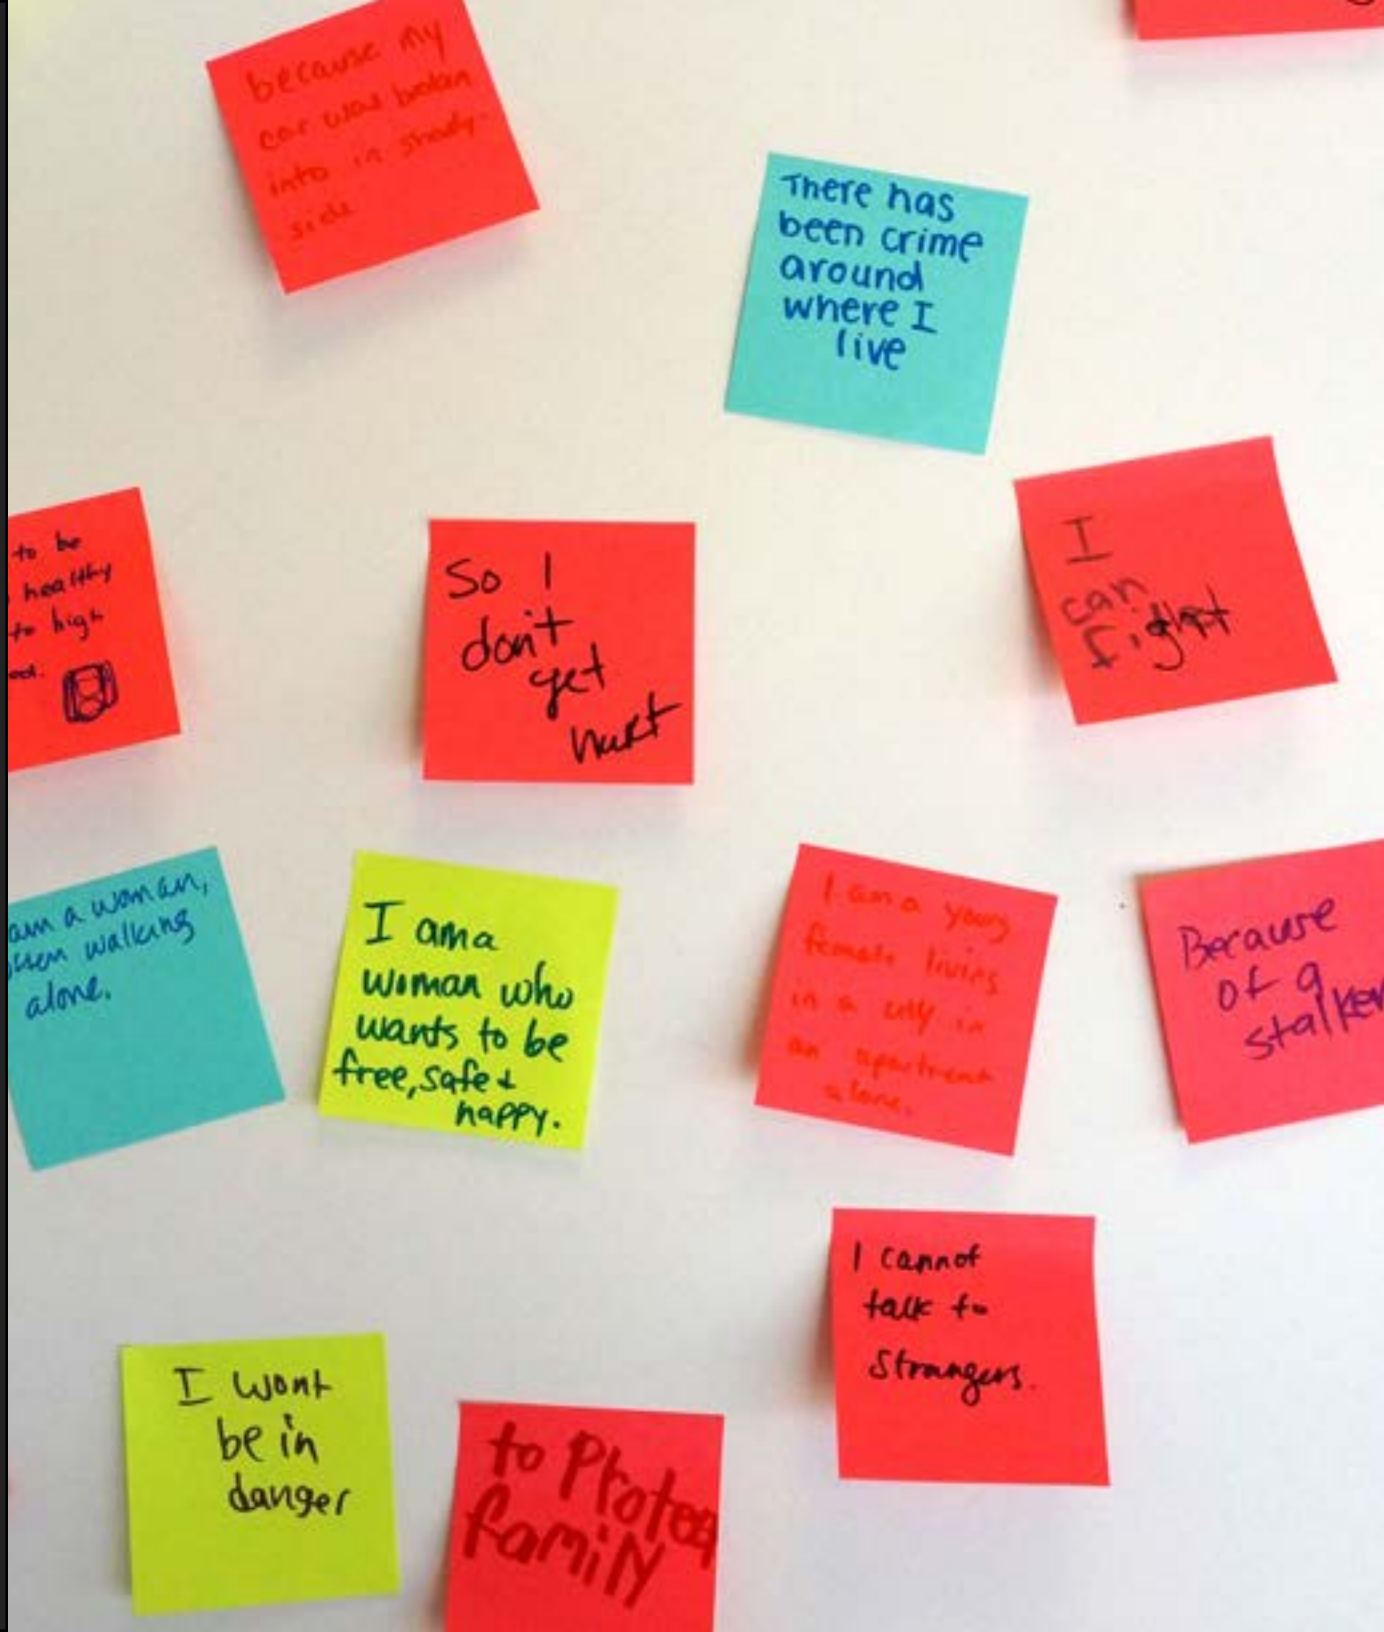 because my
car was broken
into in shady
side
There has
been crime
around
where I
live
to be
healthy
to high
So I
don't
get
hurt
I
can
fight
am a woman,
walking
alone.
I am a
woman who
wants to be
free, safe +
happy.
I am a young
female living
in a city in
an apartment
alone.
Because
of a
stalker
I cannot
talk to
strangers.
I wont
be in
danger
to Protect
family